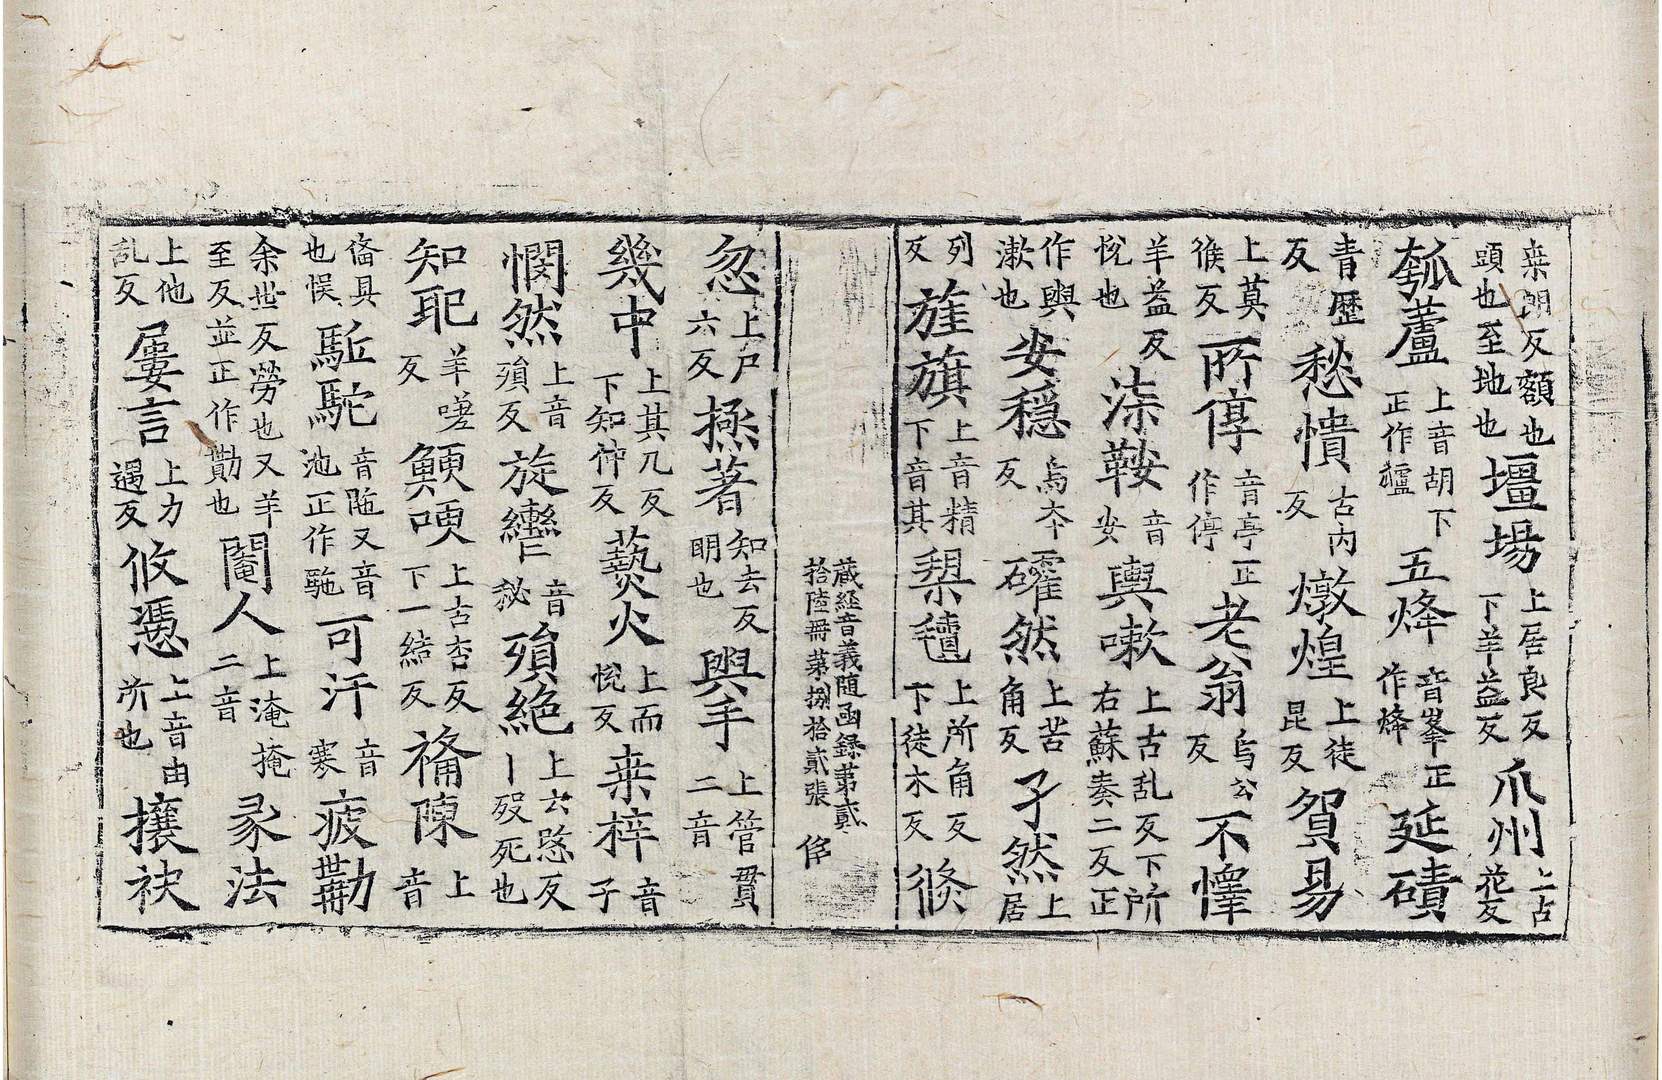 桒朗反額也頭也至地也壃場上居良反下羊益反爪州上古花反
瓠蘆上音胡下正作𤬛五烽音峯正作烽延磧
青歷反愁憒古內反燉煌上徒昆反賀易
上莫㑋反所停音亭正作停老翁烏公反不懌
羊益反恱也柒鞍音安輿嗽上古乱反下所右蘇奏二反正
作與漱也安穩烏夲反礭然上苦角反孑然上居
列反旌旗上音精下音其槊㲲上所角反下徒木反倏
藏經音義隨函録第貳拾陸冊第捌拾貳張
忽上戶六反㧣著知去反明也輿手上管貫二音
幾中上其几反下知仲反爇火上而恱反桒梓音子
憫然上音殞反旋轡音秘殞絕上云愍反丨歿死也
知耶羊嗟反鯁哽上古杏反下一結反俻陳上音
俻具也悮駈駝音陁又音池正作馳可汗音寒疲勩
余世反勞也又羊至反並正作勩也閹人上淹掩二音彖法
上他乱反屢言上力遇反攸憑上音由所也攘袂